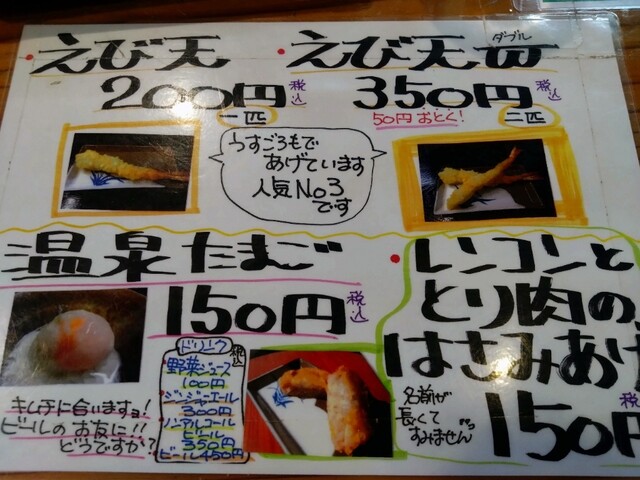 えび天
200円 税込
一匹
ダブル
えび天W
350円 税込
50円おとく!
二匹
うすごろもで
あげています
人気No3
です
温泉たまご
150円 税込
キムチに合いますョ!
ビールのお友に!!
どうですか?
ドリンク 税込
野菜ジュース
100円
ジンジャーエール
300円
ノンアルコール
ビール
350円
ビール450円
レンコンと
とり肉の
はさみあげ
150円 税
名前が
長くて
すみません